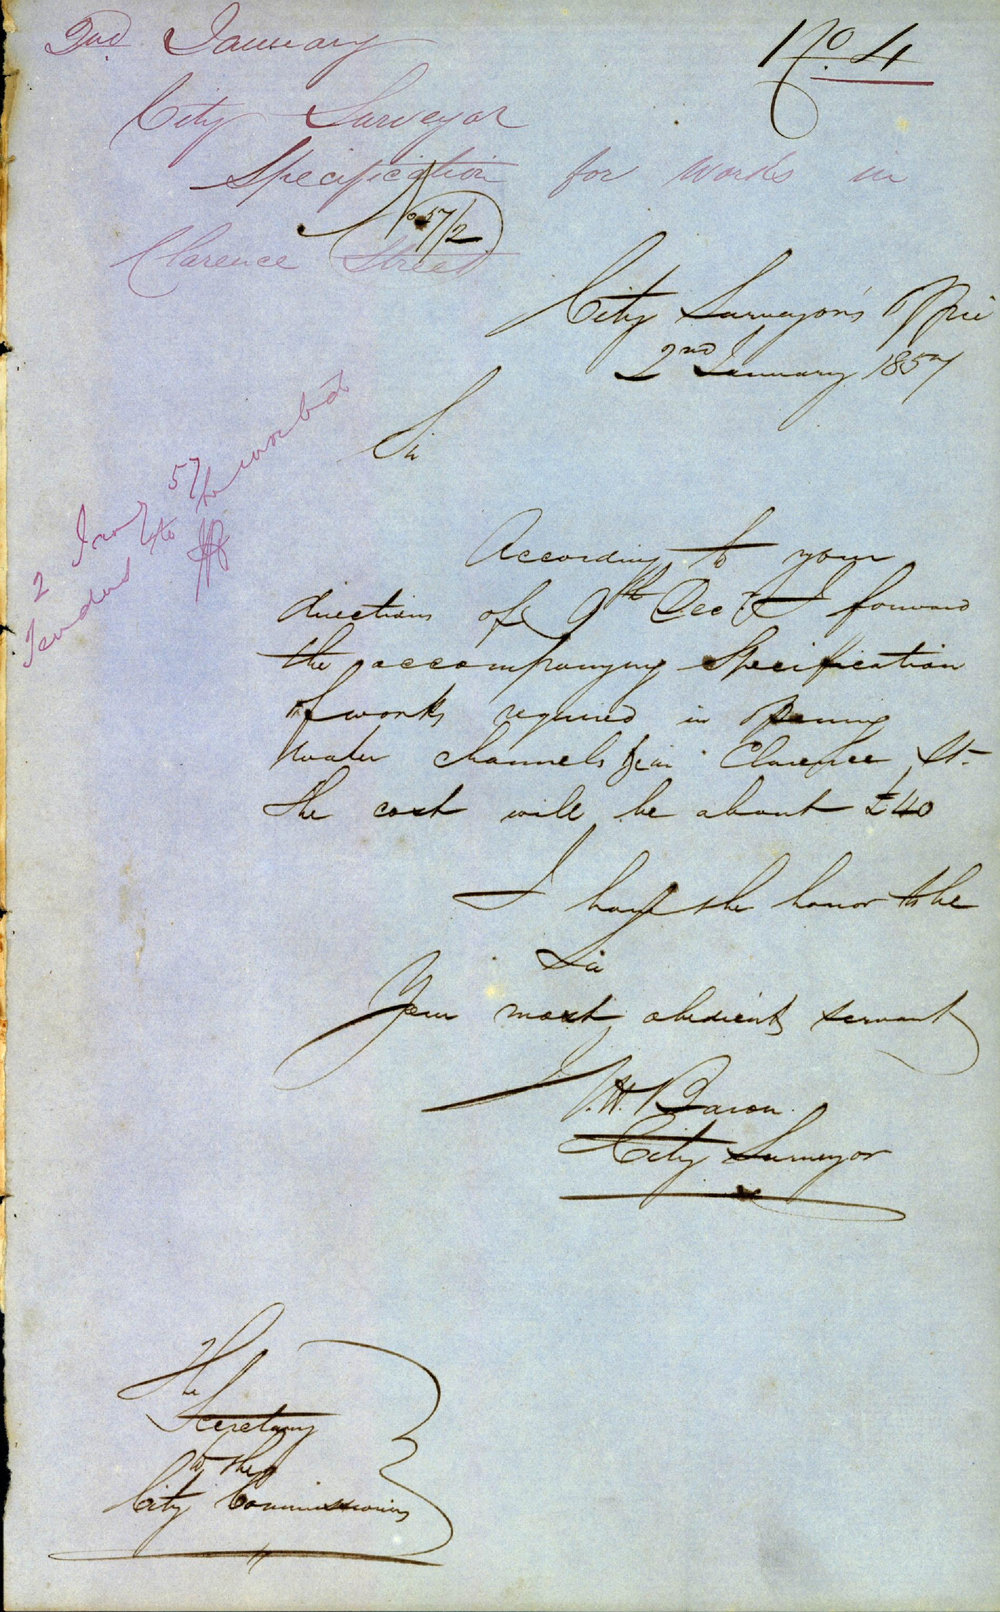 2nd January
No. 4
City Surveyor
Specification for works in
No 57/2
Clarence Street
City Surveyor's Office
2nd January 1857
Sir
2 Jany 57
Tenders to be invited
According to your
directions of 9th Decr I forward
the accompanying Specification
of works required in
Water channels in Clarence St.
the cost will be about £40
I have the honor to be
Sir
Your most obedient servant
City Surveyor
The
Secretary
to the
City Commissioners